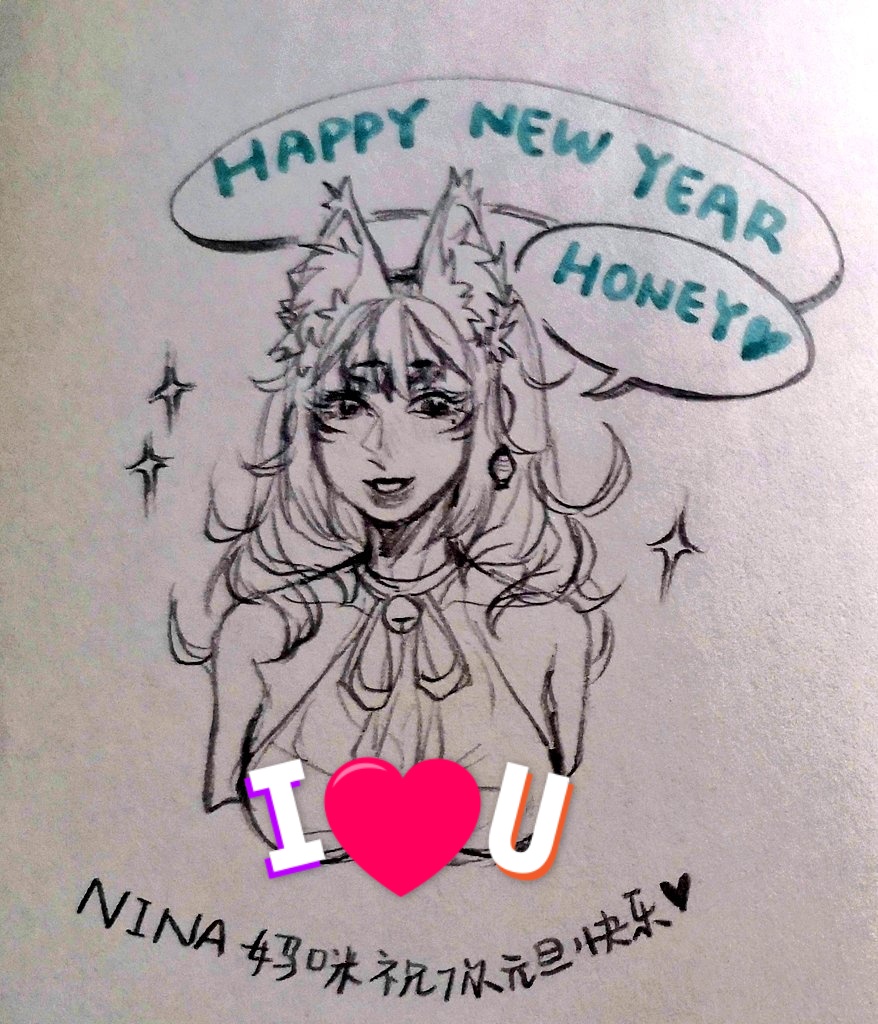 HAPPY NEW YEAR
HONEY♥
I❤U
NINA妈咪祝你元旦快乐♥